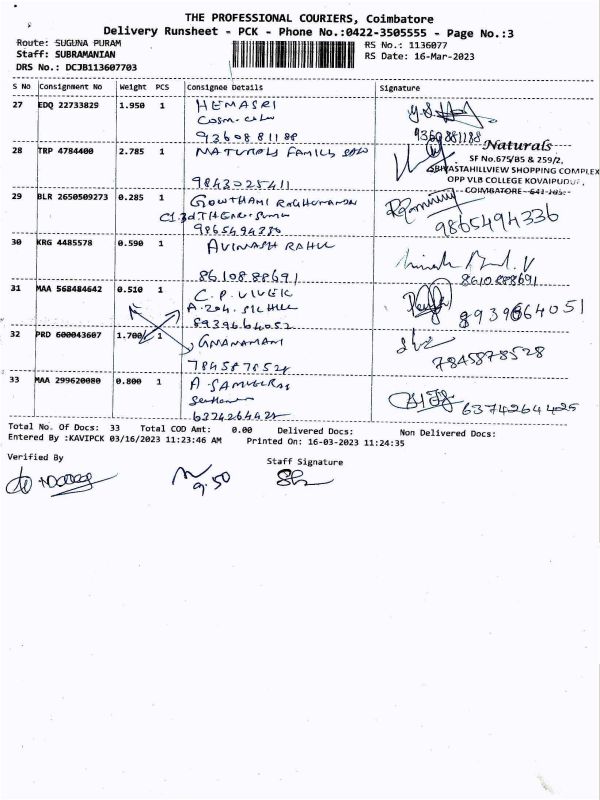 THE PROFESSIONAL COURIERS, Coimbatore
Delivery Runsheet - PCK - Phone No.:0422-3505555 - Page No.:3
Route: SUGUNA PURAM RS No.: 1136077
Staff: SUBRAMANIAN RS Date: 16-Mar-2023
DRS No.: DCJB113607703
S No Consignment No Weight PCS Consignee Details Signature
27 EDQ 22733829 1.950 1 HEMASRI
9360881188 9360881188
28 TRP 4784400 2.785 1 NATURALS FAMILY Naturals
SF No.675/B5 & 259/2,
SHOPPING COMPLEX
OPP VLB COLLEGE KOVAIPUDUR,
9843025411 COIMBATORE
29 BLR 2650509273 0.285 1 GOWTHAMI
9865494336
30 KRG 4485578 0.590 1 AVINASH RAHUL
8610888691 8610888691
31 MAA 568484642 0.510 1 C.P. VIVEK
A.204.
8939664051
32 PRD 600043607 1.700 1 GNANAMANI
7845878528
33 MAA 299620080 0.800 1 A SAMUELRAJ
6374264425
Total No. Of Docs: 33 Total COD Amt: 0.00 Delivered Docs: Non Delivered Docs:
Entered By :KAVIPCK 03/16/2023 11:23:46 AM Printed On: 16-03-2023 11:24:35
Verified By Staff Signature
9.50